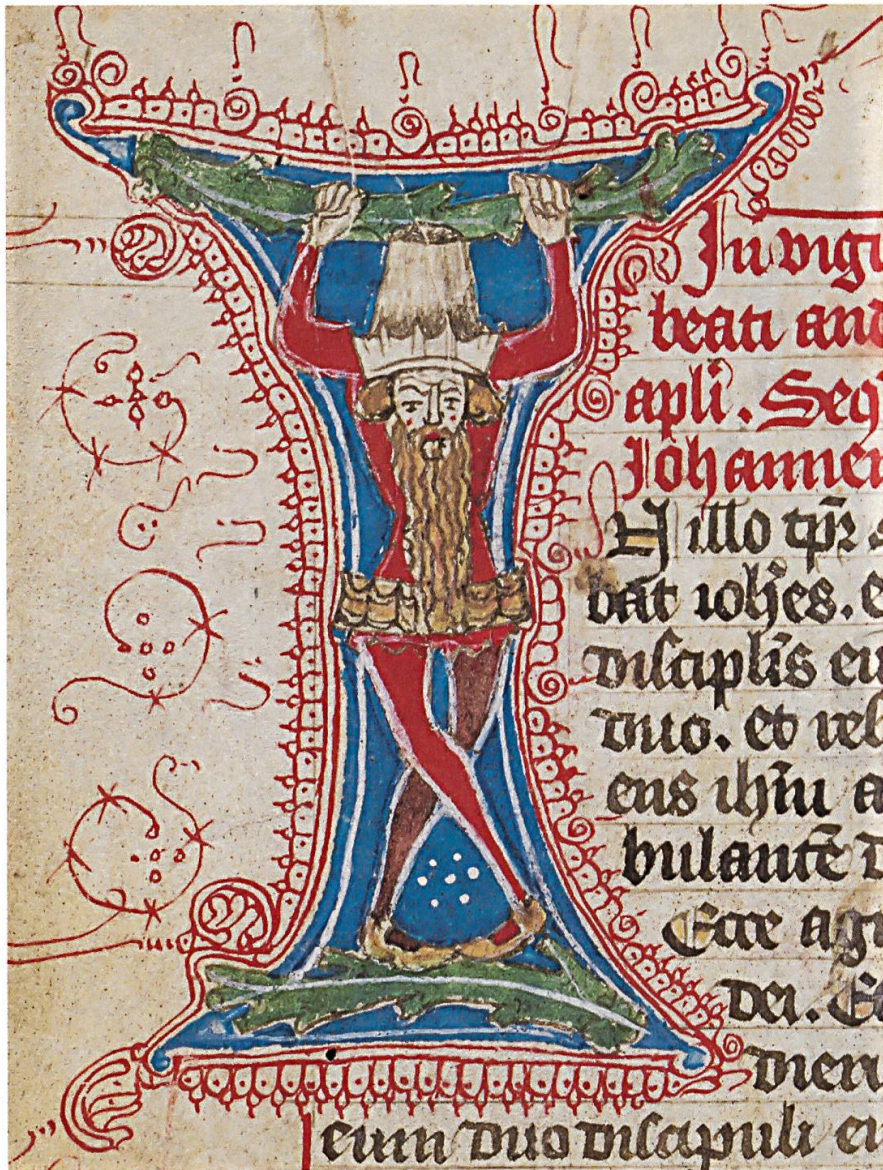 In vigi
beati and
apl̄i. Seq̄
Johannem
N illo tp̄r s
bat ioh̄es. e
discipl̄is eiu
duo. et resp
ens ih̄m a
bulantē d
Ecce agn
dei. Et
dieru
eum duo discipuli ei